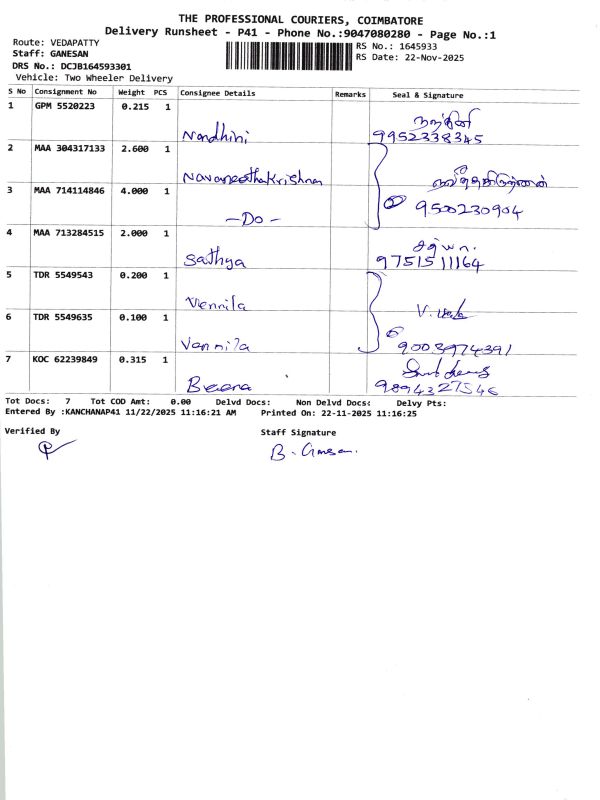 THE PROFESSIONAL COURIERS, COIMBATORE
Delivery Runsheet - P41 - Phone No.:9047080280 - Page No.:1
Route: VEDAPATTY
Staff: GANESAN
DRS No.: DCJB164593301
Vehicle: Two Wheeler Delivery
RS No.: 1645933
RS Date: 22-Nov-2025
S No Consignment No Weight PCS Consignee Details Remarks Seal & Signature
1 GPM 5520223 0.215 1 Nandhini நந்தினி 9952338345
2 MAA 304317133 2.600 1 Navaneethakrishnan
3 MAA 714114846 4.000 1 -Do- 9500230904
4 MAA 713284515 2.000 1 Sathya சத்யா 9751511164
5 TDR 5549543 0.200 1 Vennila
6 TDR 5549635 0.100 1 Vannila 9003974391
7 KOC 62239849 0.315 1 Beena 9894327546
Tot Docs: 7 Tot COD Amt: 0.00 Delvd Docs: Non Delvd Docs: Delvy Pts:
Entered By :KANCHANAP41 11/22/2025 11:16:21 AM Printed On: 22-11-2025 11:16:25
Verified By Staff Signature
B. Ganesan.